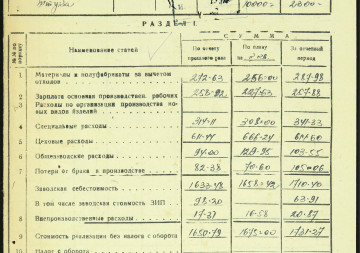 10000= 2600-
РАЗДЕЛ I.
№№ по порядку
Наименование статей
СУММА
По отчету прошлого года
По плану
За отчетный период
1 Материалы и полуфабрикаты за вычетом
отходов 272-63 256-00 287-98
2 Зарплата основная производствен. рабочих 258-92 227-63 257-88
3 Расходы по организации производства но-
вых видов изделий
4 Специальные расходы 308-00 341-33
5 Цеховые расходы 611-77 666-24
6 Общезаводские расходы 94-00 129-95 103-55
7 Потери от брака в производстве 82-38 70-60 105=06
Заводская себестоимость 1633-48 1658=42 1710-40
В том числе заводская стоимость ЗИП 98-30 63-91
8 Внепроизводственные расходы 17-31 16-58 20-87
9 Стоимость реализации без налога с оборота 1650-79 1675=00 1731-27
10 Налог с оборота